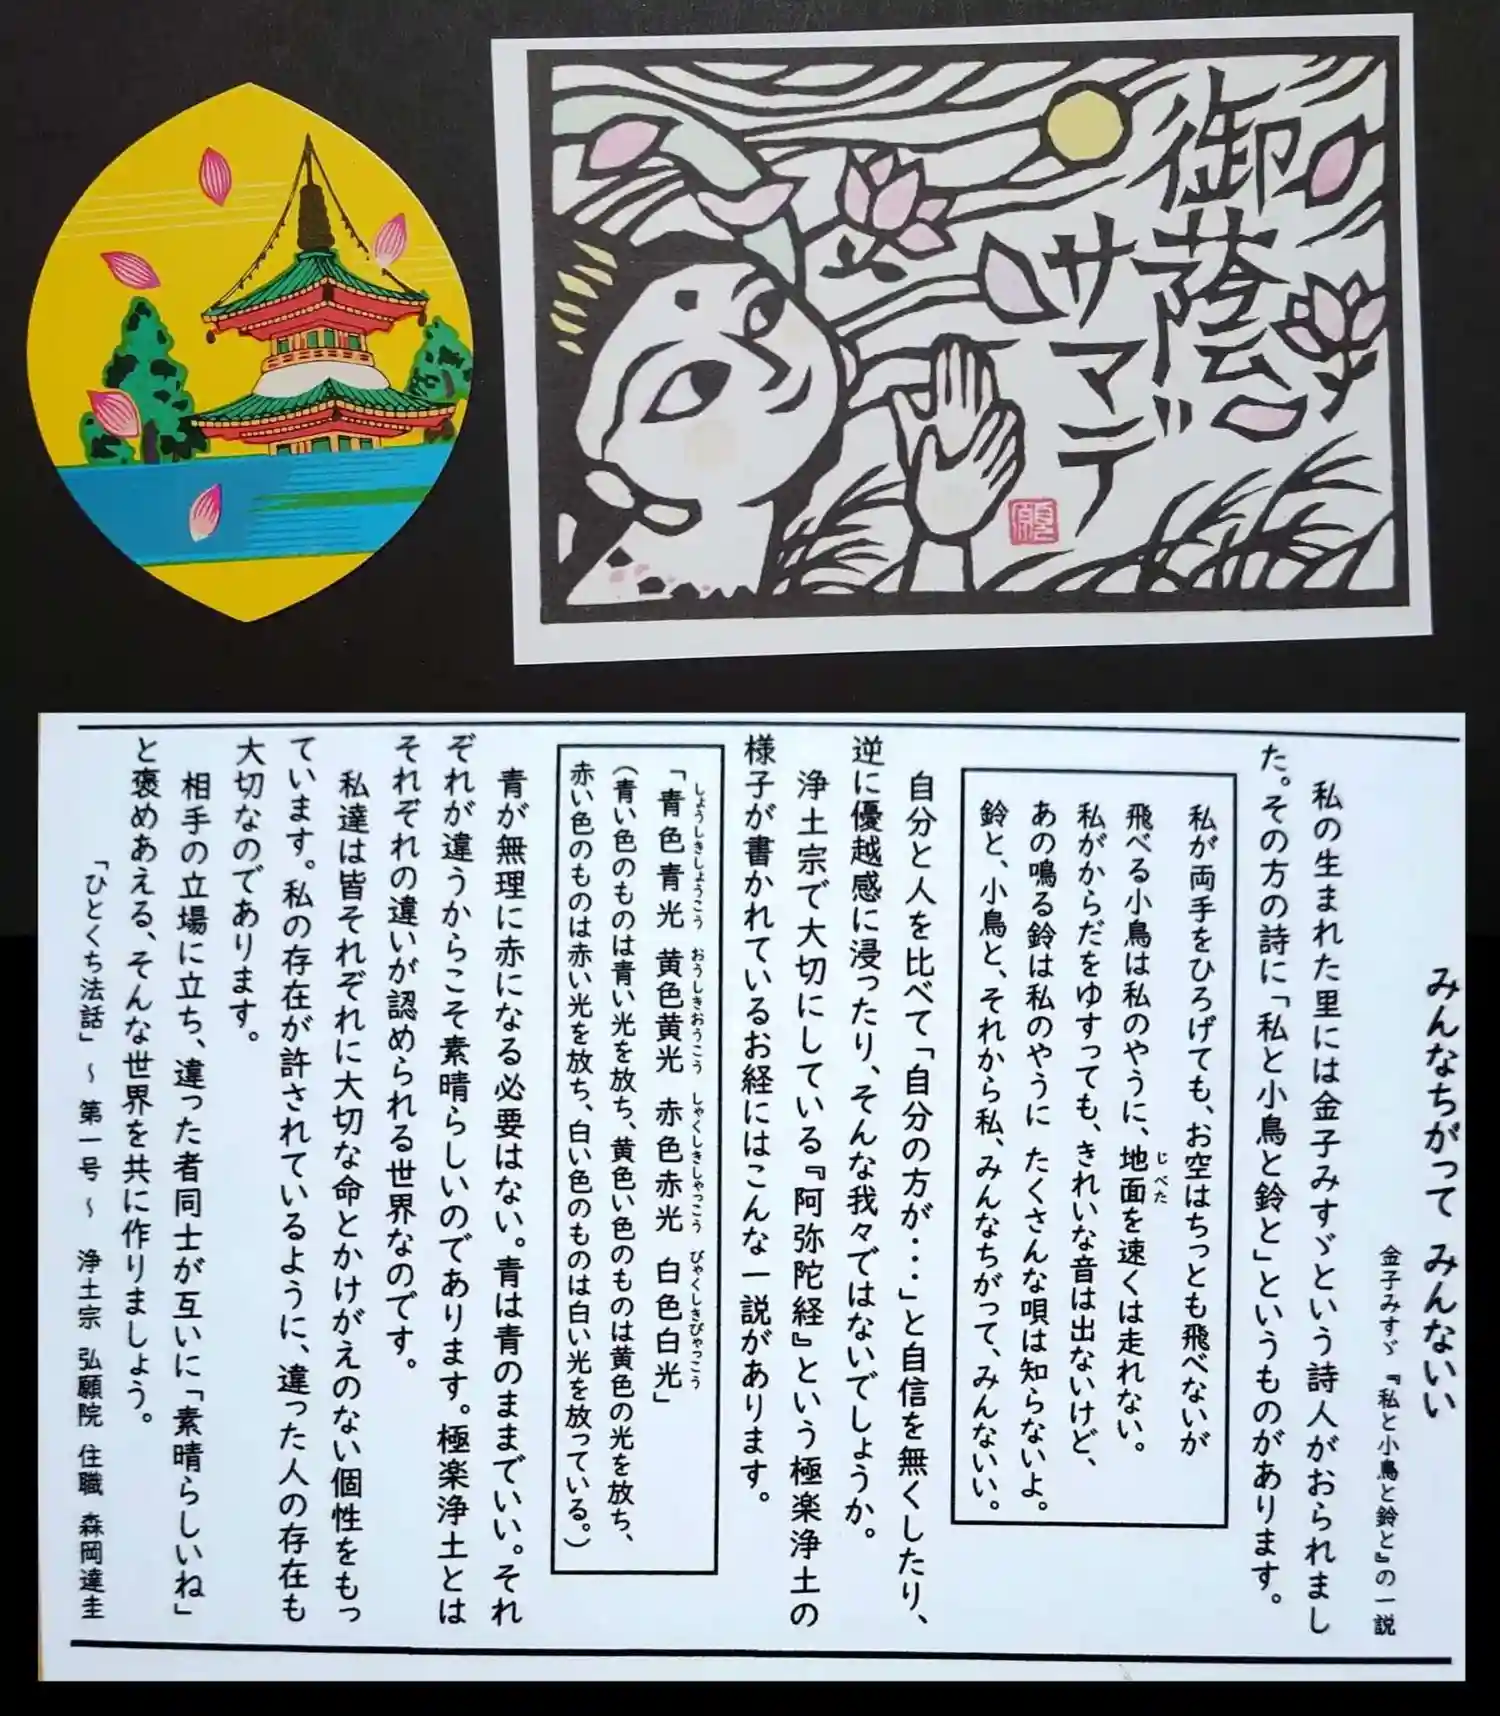 御蔭
サマデ
願
みんなちがって みんないい
金子みすゞ『私と小鳥と鈴と』の一説
私の生まれた里には金子みすゞという詩人がおられまし
た。その方の詩に「私と小鳥と鈴と」というものがあります。
私が両手をひろげても、お空はちっとも飛べないが
飛べる小鳥は私のやうに、地面を速くは走れない。
じべた
私がからだをゆすっても、きれいな音は出ないけど、
あの鳴る鈴は私のやうに たくさんな唄は知らないよ。
鈴と、小鳥と、それから私、みんなちがって、みんないい。
自分と人を比べて「自分の方が・・・」と自信を無くしたり、
逆に優越感に浸ったり、そんな我々ではないでしょうか。
浄土宗で大切にしている『阿弥陀経』という極楽浄土の
様子が書かれているお経にはこんな一説があります。
しょうしきしょうこう おうしきおうこう しゃくしきしゃっこう びゃくしきびゃっこう
「青色青光 黄色黄光 赤色赤光 白色白光」
(青い色のものは青い光を放ち、黄色い色のものは黄色の光を放ち、
赤い色のものは赤い光を放ち、白い色のものは白い光を放っている。)
青が無理に赤になる必要はない。青は青のままでいい。それ
ぞれが違うからこそ素晴らしいのであります。極楽浄土とは
それぞれの違いが認められる世界なのです。
私達は皆それぞれに大切な命とかけがえのない個性をもっ
ています。私の存在が許されているように、違った人の存在も
大切なのであります。
相手の立場に立ち、違った者同士が互いに「素晴らしいね」
と褒めあえる、そんな世界を共に作りましょう。
「ひとくち法話」～第一号～ 浄土宗 弘願院 住職 森岡達圭